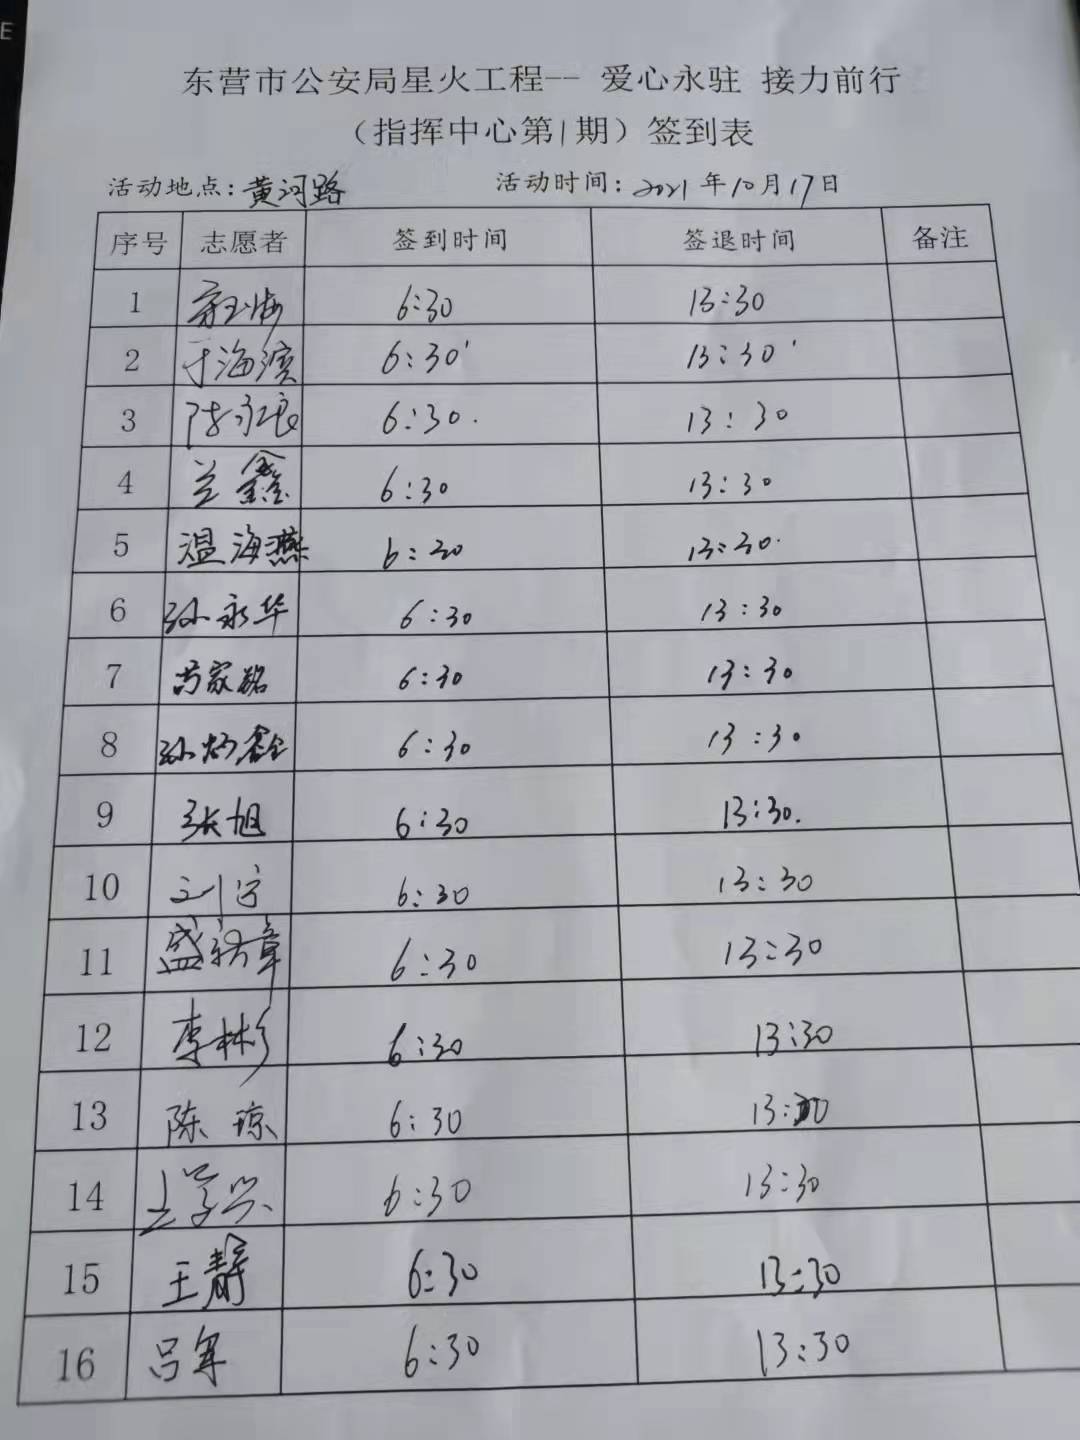 东营市公安局星火工程-- 爱心永驻 接力前行
（指挥中心第1期）签到表
活动地点：黄河路 活动时间：2021年10月17日
序号 志愿者 签到时间 签退时间 备注
1 6:30 13:30
2 于海滨 6:30 13:30
3 陈永良 6:30. 13:30
4 兰鑫 6:30 13:30
5 温海燕 6:30 13:30.
6 孙永华 6:30 13:30
7 6:30 13:30
8 孙炳鑫 6:30 13:30
9 张旭 6:30 13:30.
10 刘宁 6:30 13:30
11 盛 章 6:30 13:30
12 李彬 6:30 13:30
13 陈琼 6:30 13:30
14 6:30 13:30
15 王静 6:30 13:30
16 吕军 6:30 13:30